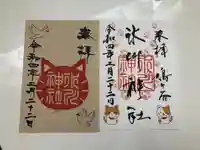 奉拝
氷川
神社
令和四年二月二十二日
奉拝
鳩ヶ谷
氷川神社
令和四年二月二十二日